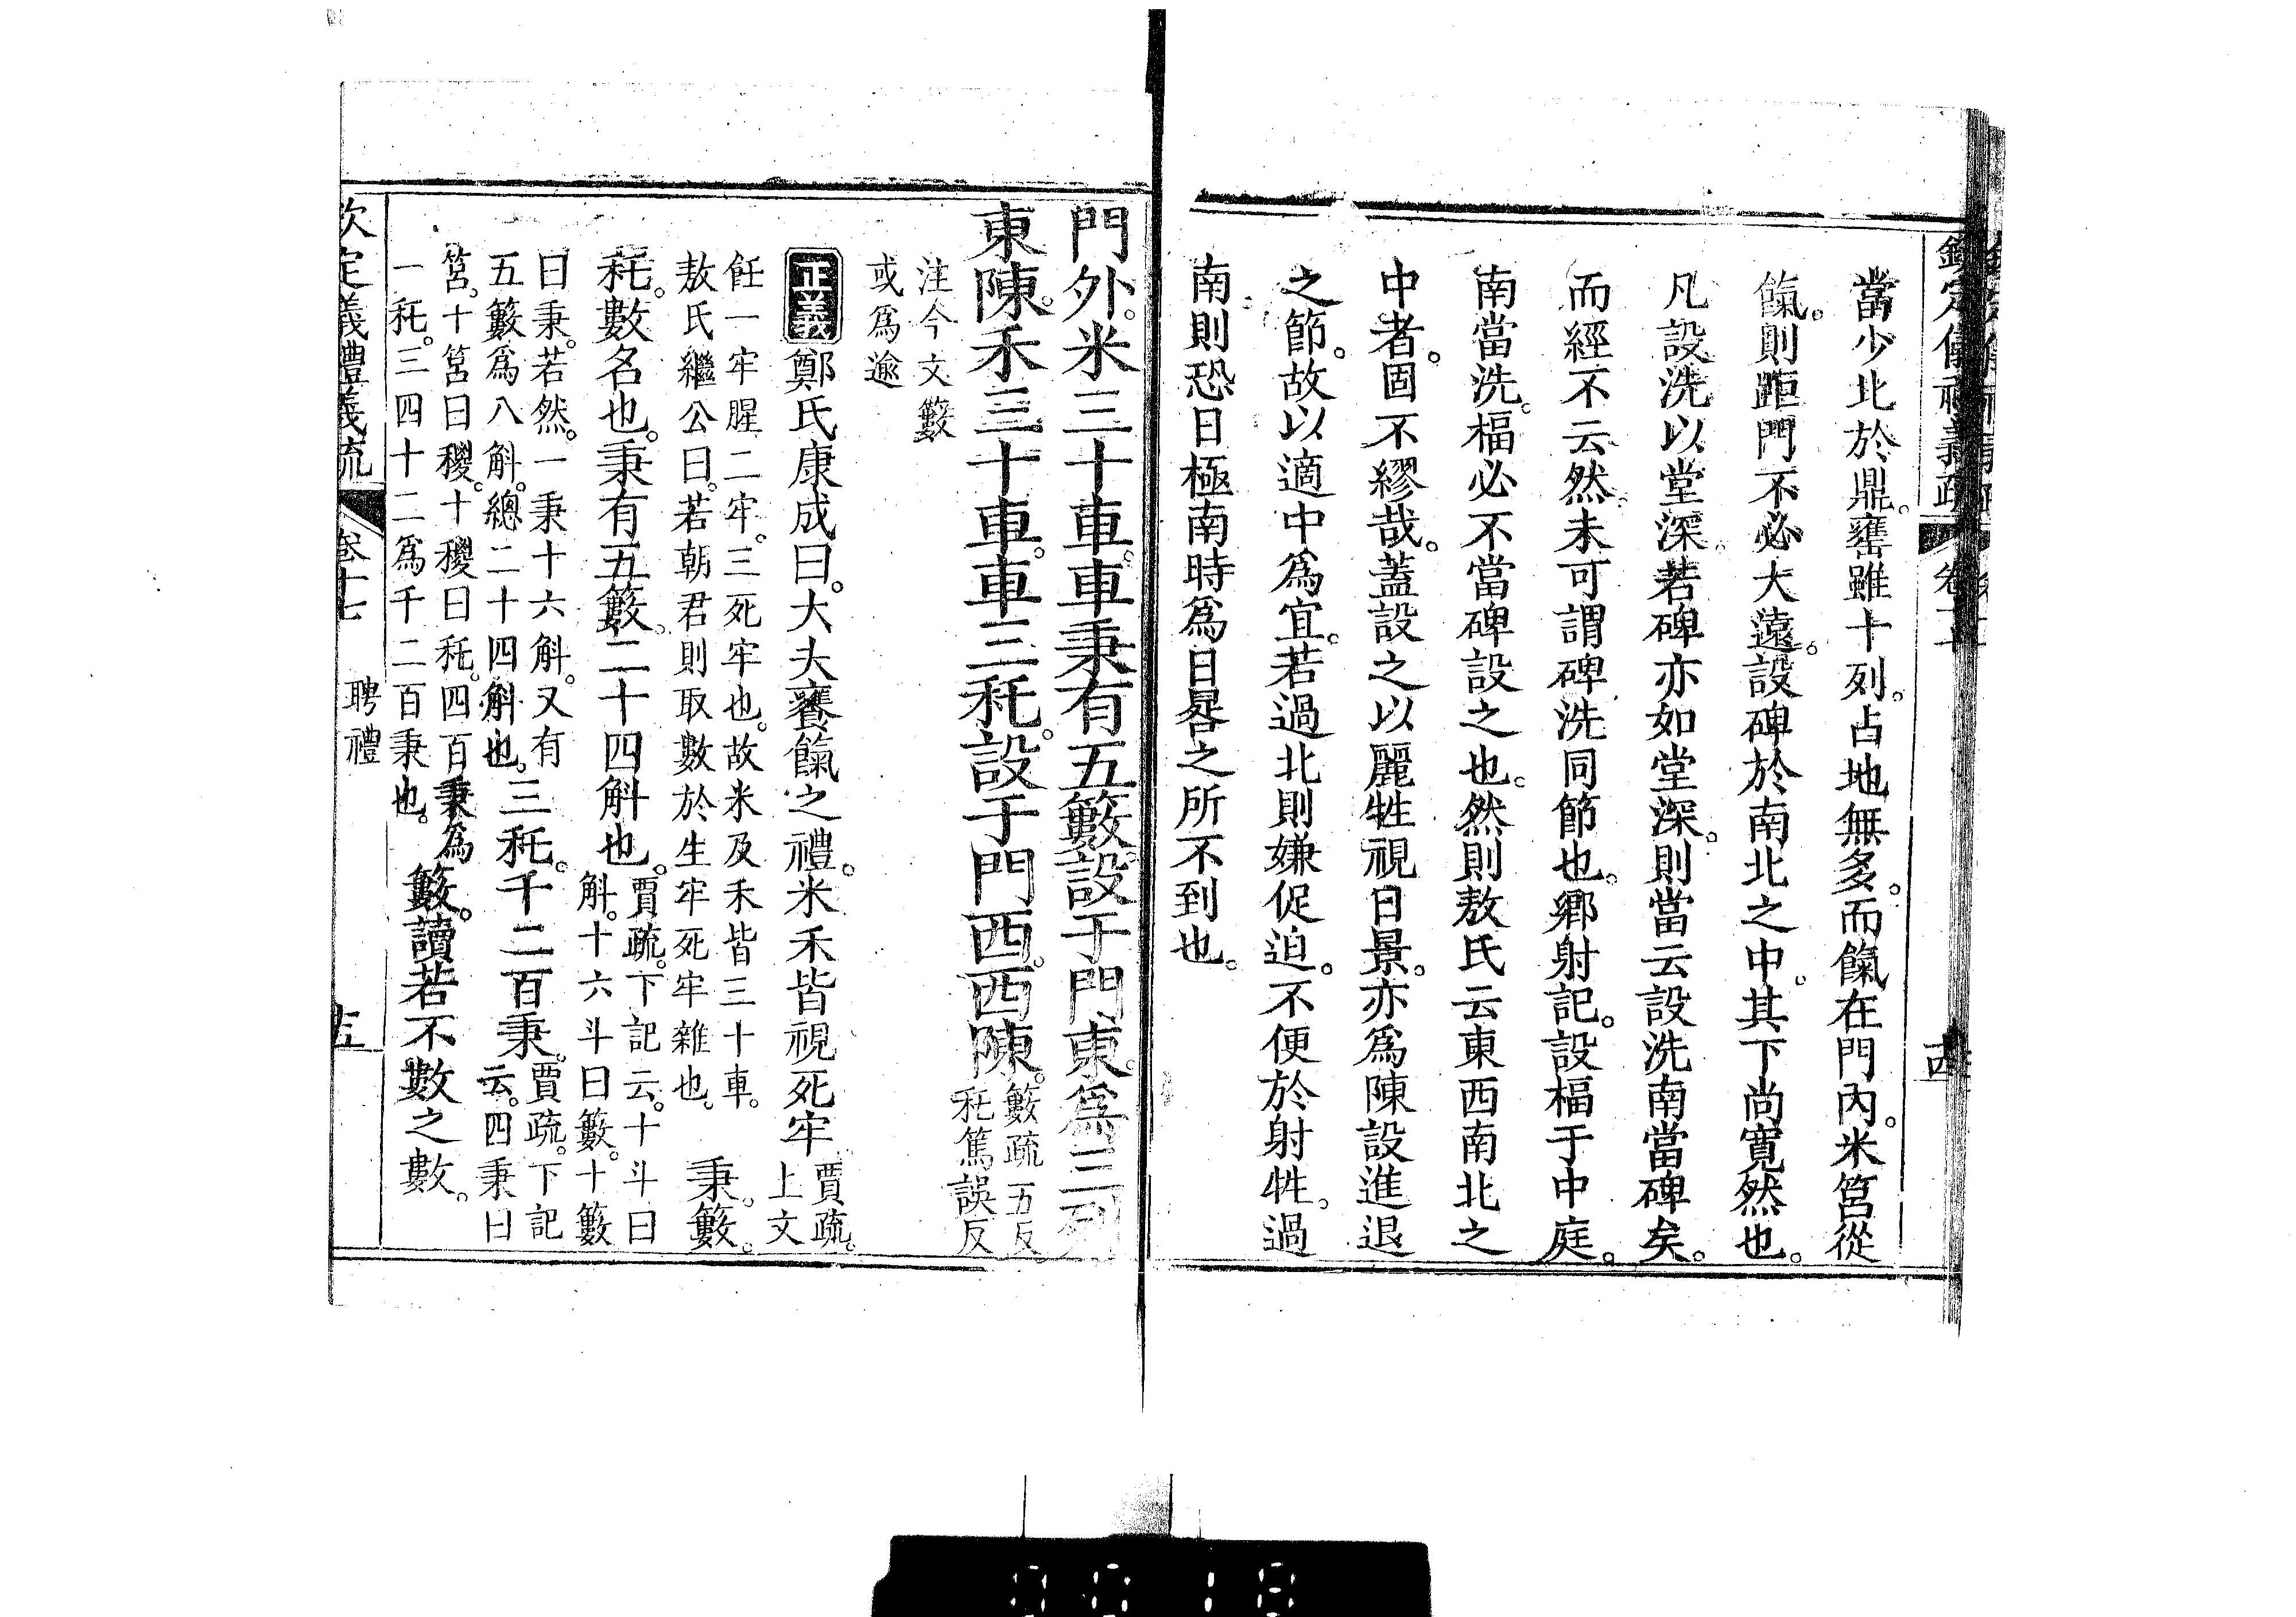 當少北於鼎。罋雖十列。占地無多。而餼在門內。米筥從
餼。則距門不必大遠。設碑於南北之中。其下尚寬然也。
凡設洗以堂深。若碑亦如堂深。則當云設洗南當碑矣。
而經不云然。未可謂碑洗同節也。鄉射記。設楅于中庭。
南當洗。楅必不當碑設之也。然則敖氏云東西南北之
中者。固不繆哉。蓋設之以麗牲視日景。亦爲陳設進退
之節。故以適中爲宜。若過北則嫌促迫。不便於射牲。過
南。則恐日極南時爲日晷之所不到也。
門外。米三十車。車秉有五籔。設于門東。爲三列
東陳。禾三十車。車三秅。設于門西。西陳。籔疏五反
秅篤誤反
注今文籔
或爲逾
正義鄭氏康成曰。大夫饔餼之禮。米禾皆視死牢賈疏。
上文
飪一牢腥二牢。三死牢也。故米及禾皆三十車。
敖氏繼公曰。若朝君則取數於生牢死牢雜也。秉。籔。
秅。數名也。秉有五籔。二十四斛也。賈疏。下記云。十斗曰
斛。十六斗曰籔。十籔
曰秉。若然。一秉十六斛。又有
五籔爲八斛。總二十四斛也。三秅。千二百秉。賈疏。下記
云。四秉曰
筥。十筥曰稯。十稯曰秅。四百秉爲
一秅。三四十二爲千二百秉也。籔。讀若不數之數。
欽定義禮義疏 卷十七 聘禮 十五